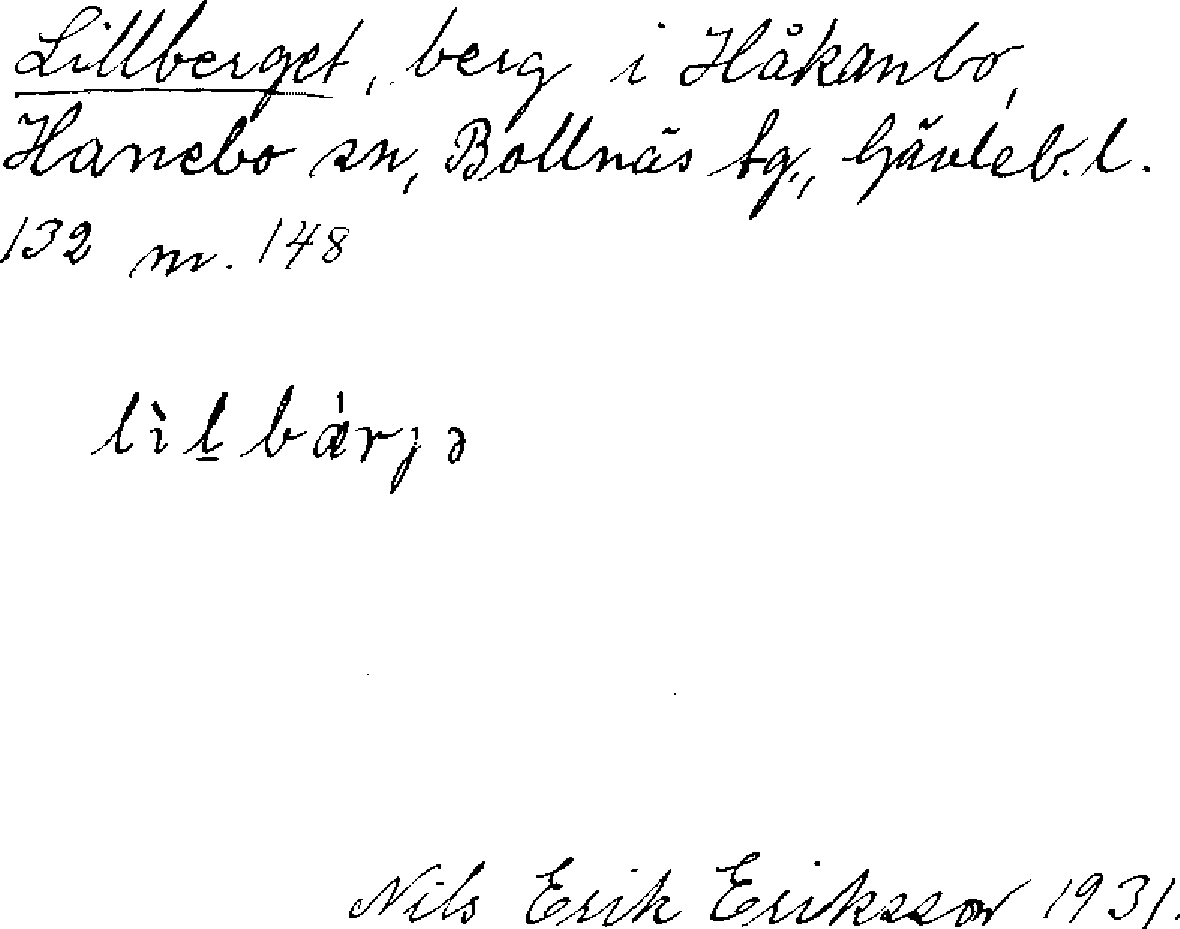 Lillberget, berg i Håkanbo,
Hanebo sn, Bollnäs tg., Gävleb. l.
132 m. 148
lìḻbárjə
Nils Erik Eriksson 1931.